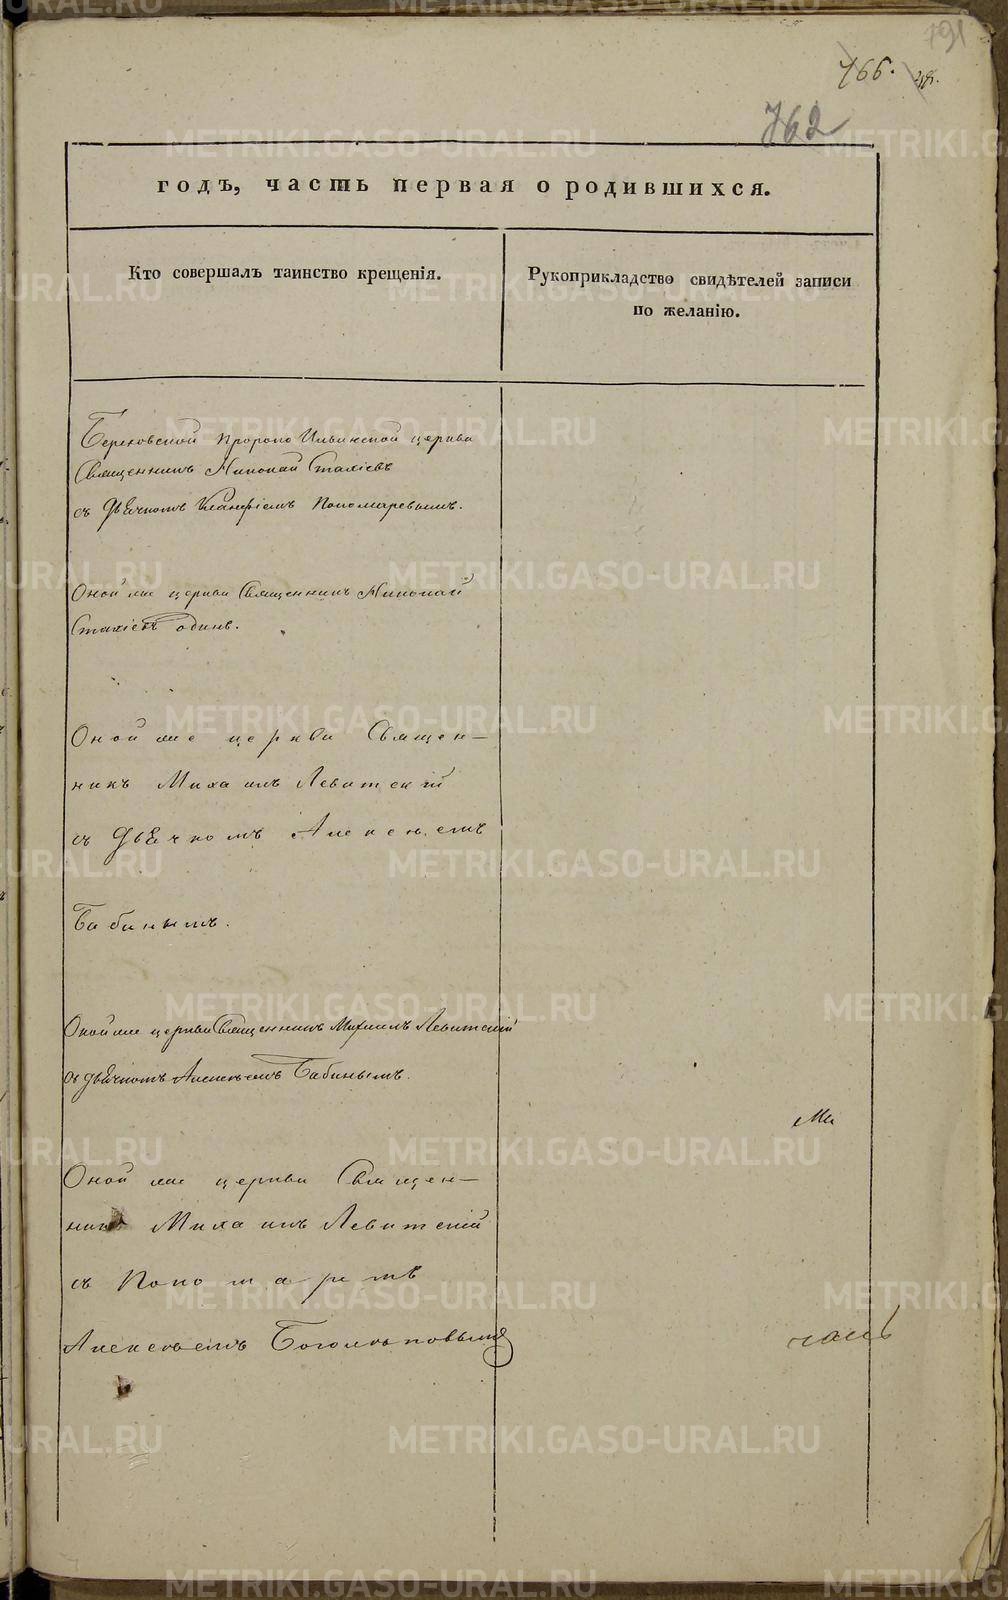 791
166.
762
годъ, часть первая о родившихся.
Кто совершалъ таинство крещенія.
Рукоприкладство свидѣтелей записи
по желанію.
Березовской Пророко Ильинской церкви
Священникъ Николай Стахіевъ
съ Дьячкомъ Пономаревымъ.
Оной же церкви Священникъ Николай
Стахіевъ одинъ.
Оной же церкви Священ-
никъ Михаилъ Левитскій
съ Дьячкомъ Алексѣемъ
Бабинымъ.
Оной же церкви Священникъ Михаилъ Левитскій
съ дьячкомъ Алексѣемъ Бабинымъ.
Оной же церкви Священ-
никъ Михаилъ Левитскій
съ Пономаремъ
Алексѣемъ Боголѣповымъ
METRIKI.GASO-URAL.RU